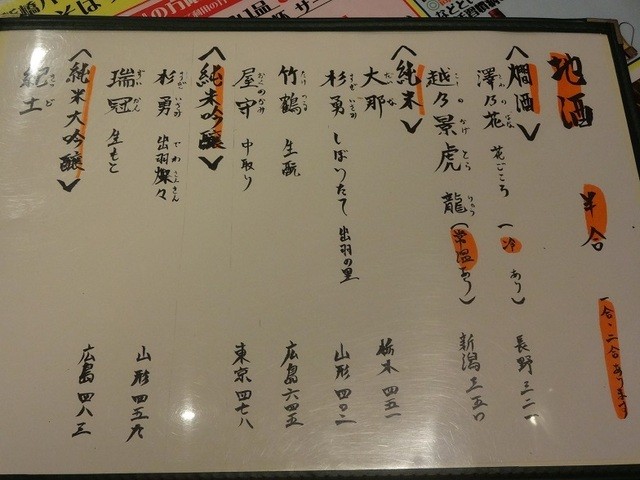 地酒 半合 一合・二合あります
〈燗酒〉
澤乃花 花ごころ (冷あり) 長野 三二一
越乃景虎 龍 (常温あり) 新潟 三五〇
〈純米〉
大那 栃木 四五一
杉勇 しぼりたて 出羽の里 山形 四〇二
竹鶴 生酛 広島 六四五
屋守 中取り 東京 四七八
〈純米吟醸〉
杉勇 出羽燦々 山形 四五九
瑞冠 生もと 広島 四八三
〈純米大吟醸〉
紀土